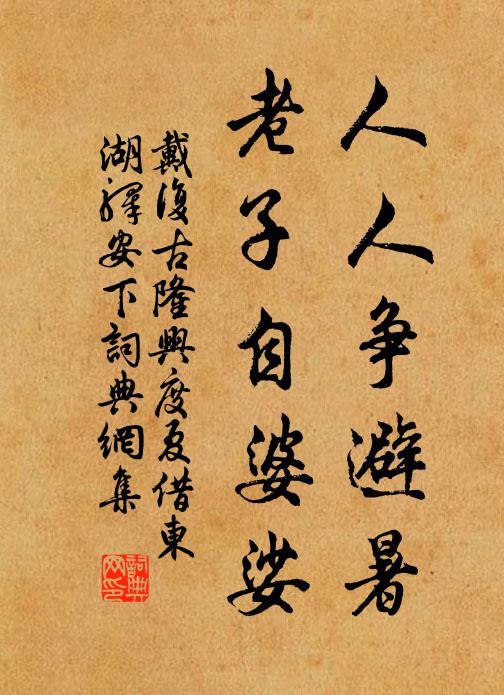 人人争避暑
老子自婆娑
戴復古隆興度夏借東
湖驛安下詞典網集
詞典網印